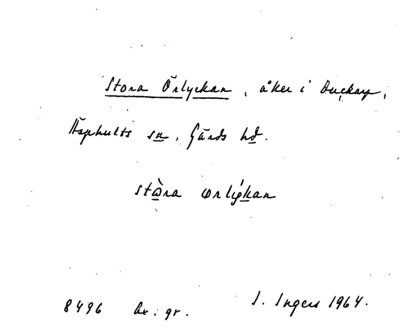 Stora Örlyckan, åker i Duckarp,
Äsphults sn, Gärds hd.
stòra ørlýkan
8496 av: gr. I. Ingers 1964.